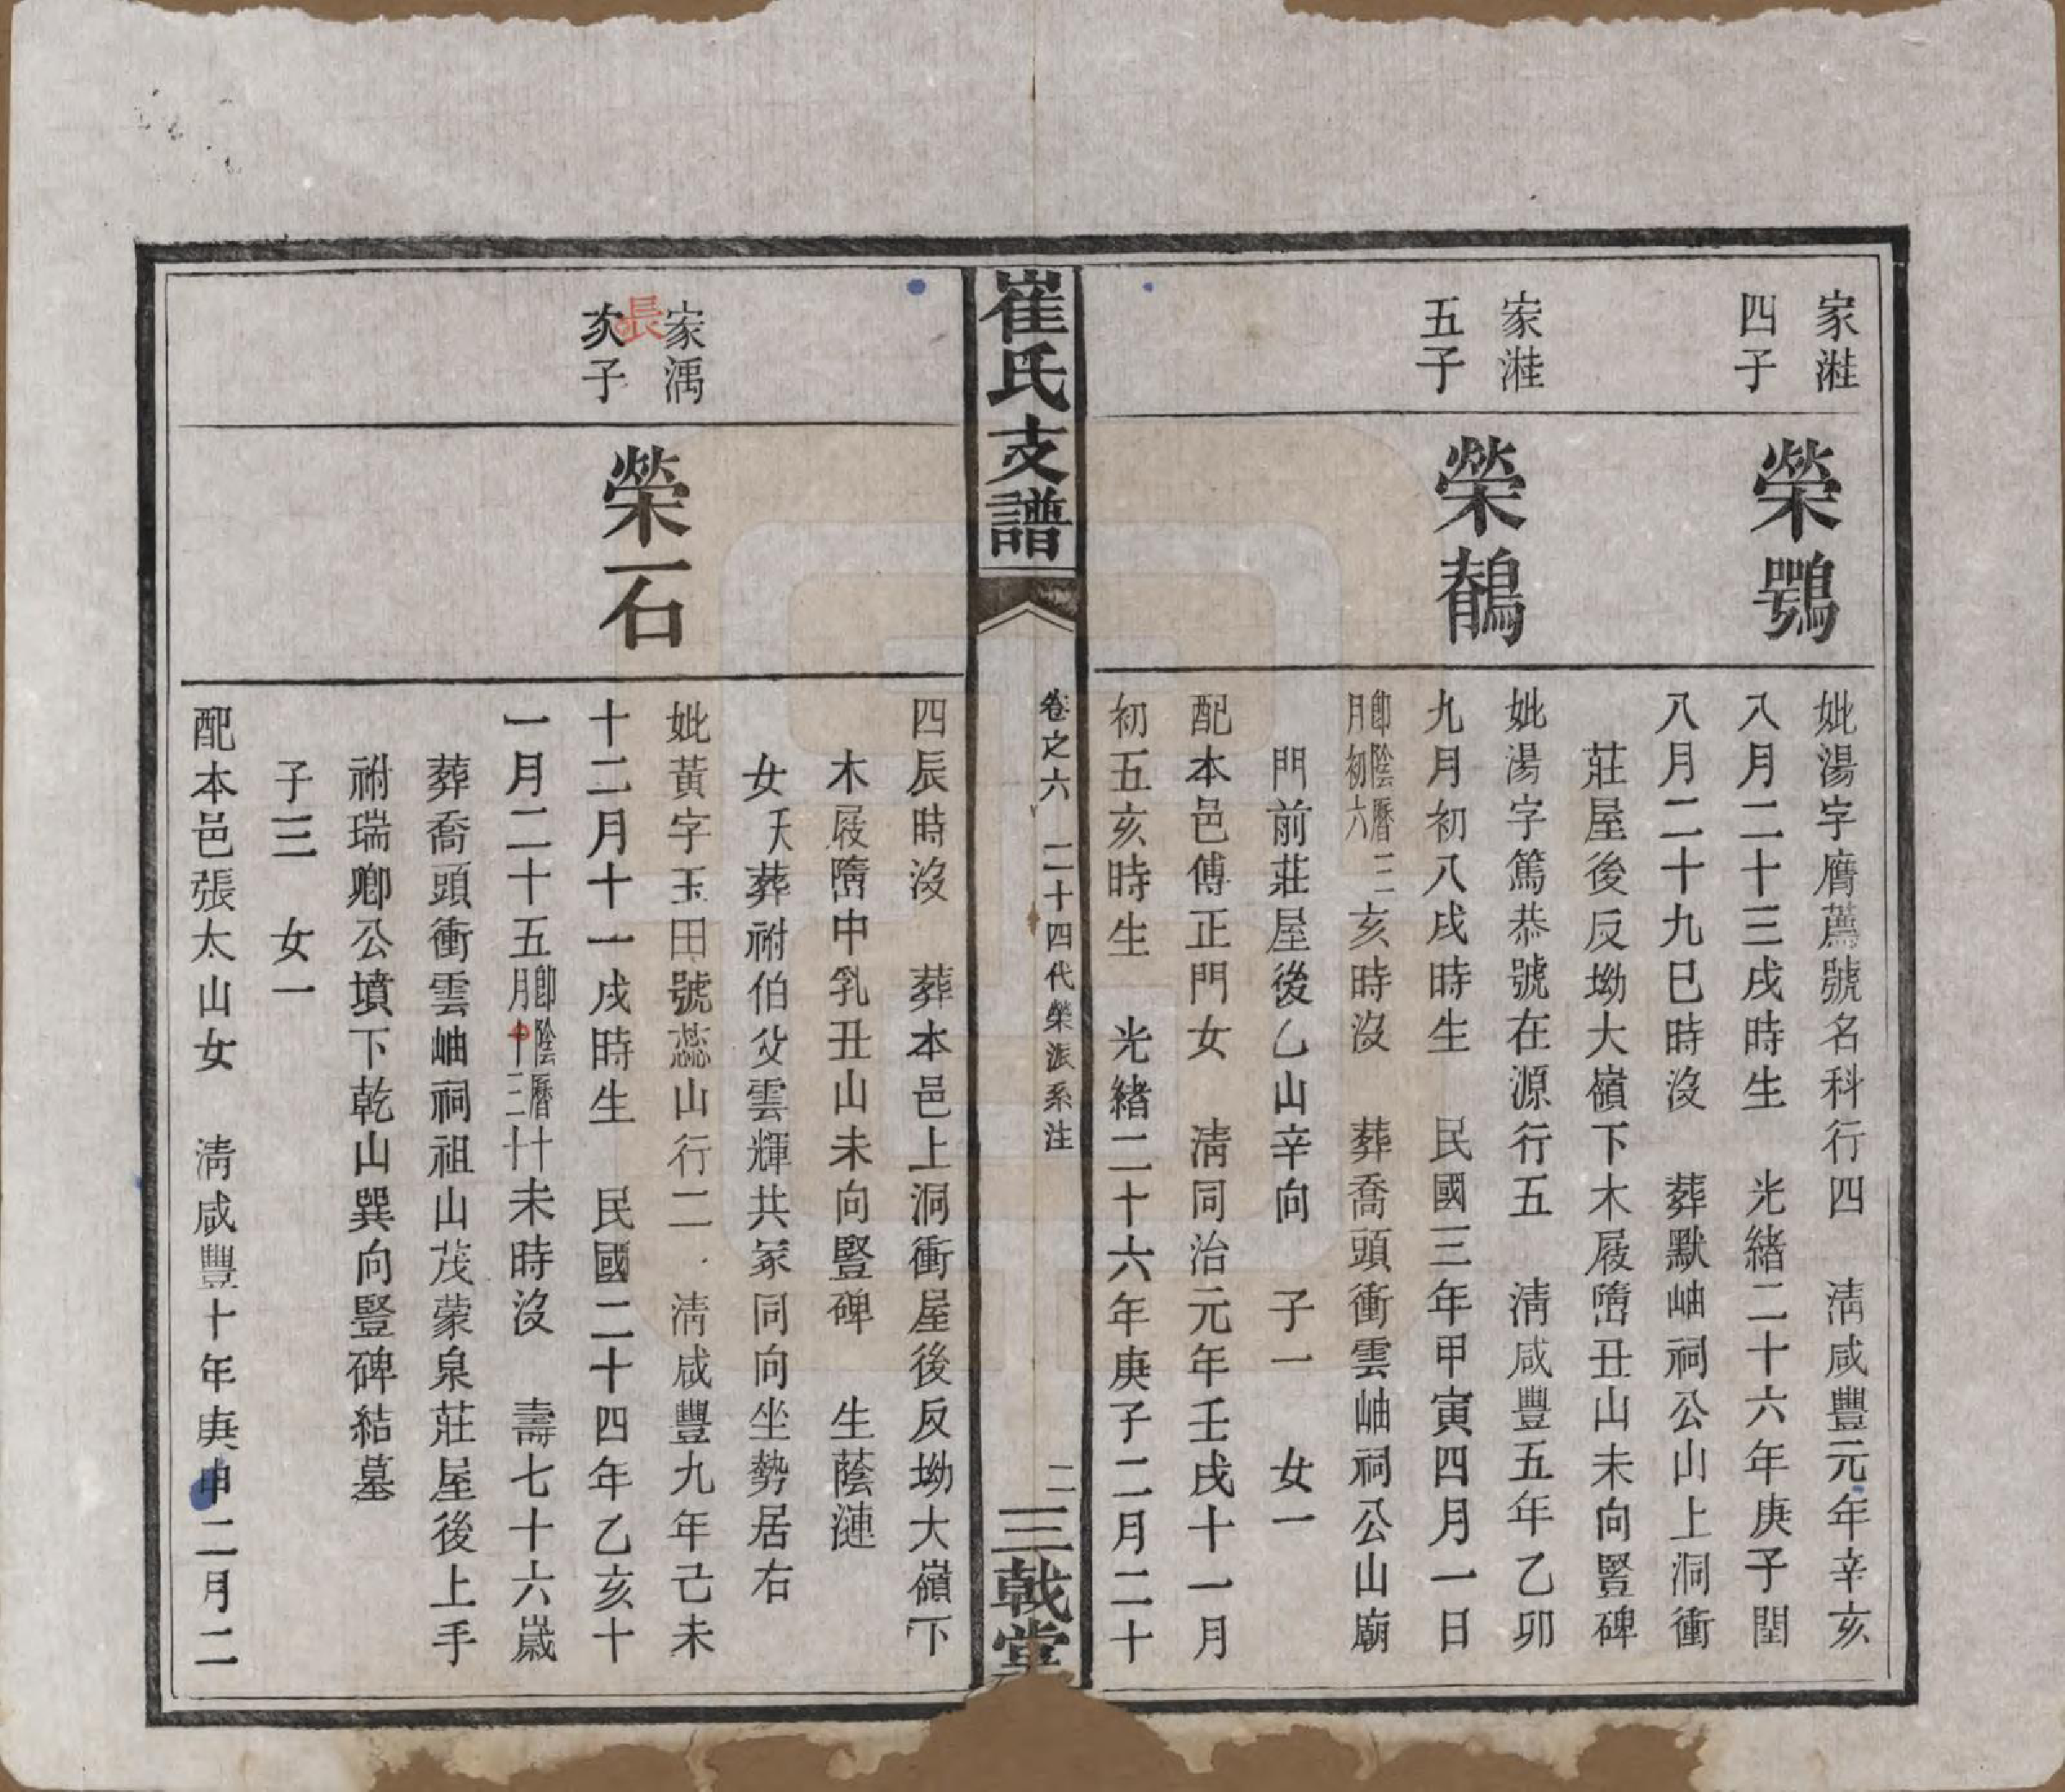 家溎
四子
榮鶚
妣湯字膺薦號名科行四　清咸豐元年辛亥
八月二十三戌時生　光緒二十六年庚子閏
八月二十九巳時沒　葬默岫祠公山上洞衝
莊屋後反坳大嶺下木屐嶞丑山未向豎碑
家溎
五子
榮鶄
妣湯字篤恭號在源行五　清咸豐五年乙卯
九月初八戌時生　民國三年甲寅四月一日
卽陰曆三月初六亥時沒　葬喬頭衝雲岫祠公山廟
門前莊屋後乙山辛向　子一　女一
配本邑傅正門女　清同治元年壬戌十一月
初五亥時生　光緒二十六年庚子二月二十
崔氏支譜
卷之六　二十四代榮派系注
二
三戟堂
四辰時沒　葬本邑上洞衝屋後反坳大嶺下
木屐嶞中乳丑山未向豎碑　生蔭漣
女夭葬祔伯父雲輝共冢同向坐勢居右
家澫
次子
長
榮石
妣黃字玉田號蕊山行二　清咸豐九年己未
十二月十一戌時生　民國二十四年乙亥十
一月二十五卽陰曆十月三十未時沒　壽七十六歲
葬喬頭衝雲岫祠祖山茂蒙泉莊屋後上手
祔瑞卿公墳下乾山巽向豎碑結墓
子三　女一
配本邑張太山女　清咸豐十年庚申二月二